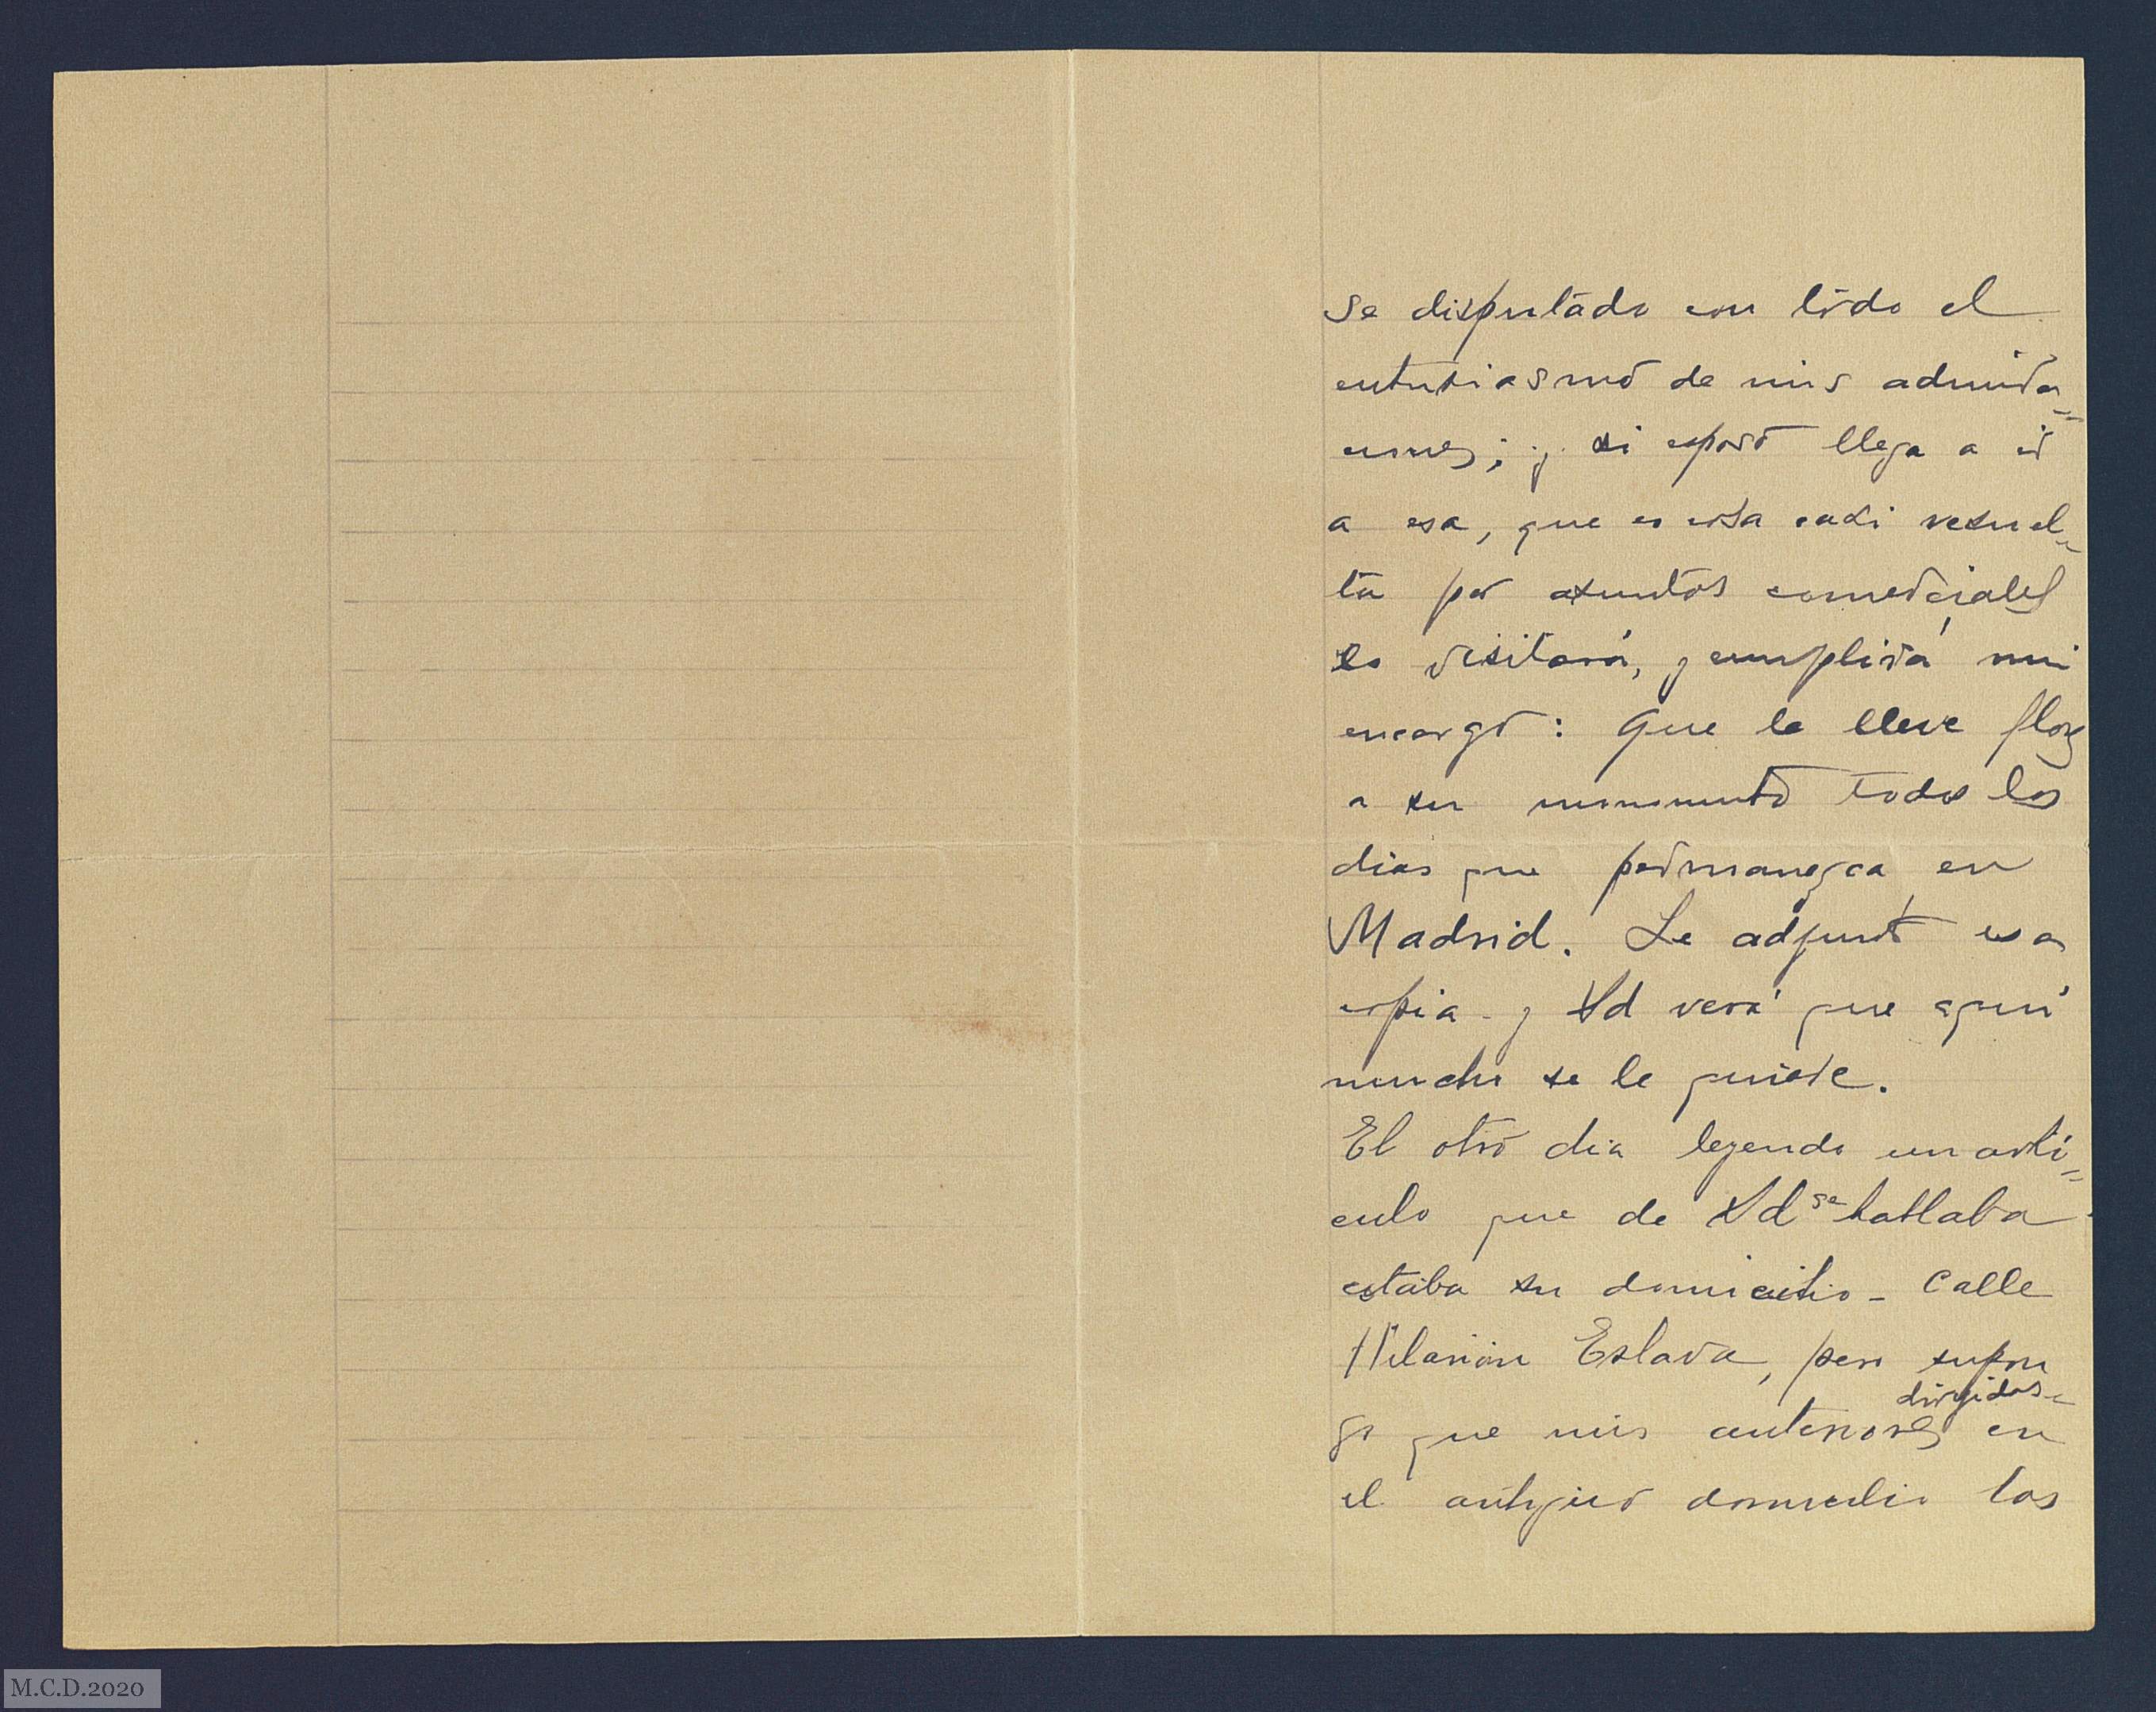 se disputado con todo el
entusiasmo de mis admira=
ciones; y si esposo llega a ir
a esa, que es cosa casi resuel=
ta por asuntos comerciales
lo visitará, y cumplirá mi
encargo: Que le lleve flores
a su monumento todos los
dias que permanezca en
Madrid. Le adjunto esa
copia - y Vd verá que aquí
mucho se le quiere.
El otro dia leyendo un artí=
culo que de Vd se hablaba
estaba su domicilio - Calle
Hilarión Eslava, pero supon
dirgidas
go que mis anteriores en
el antiguo domicilio las
M.C.D.2020